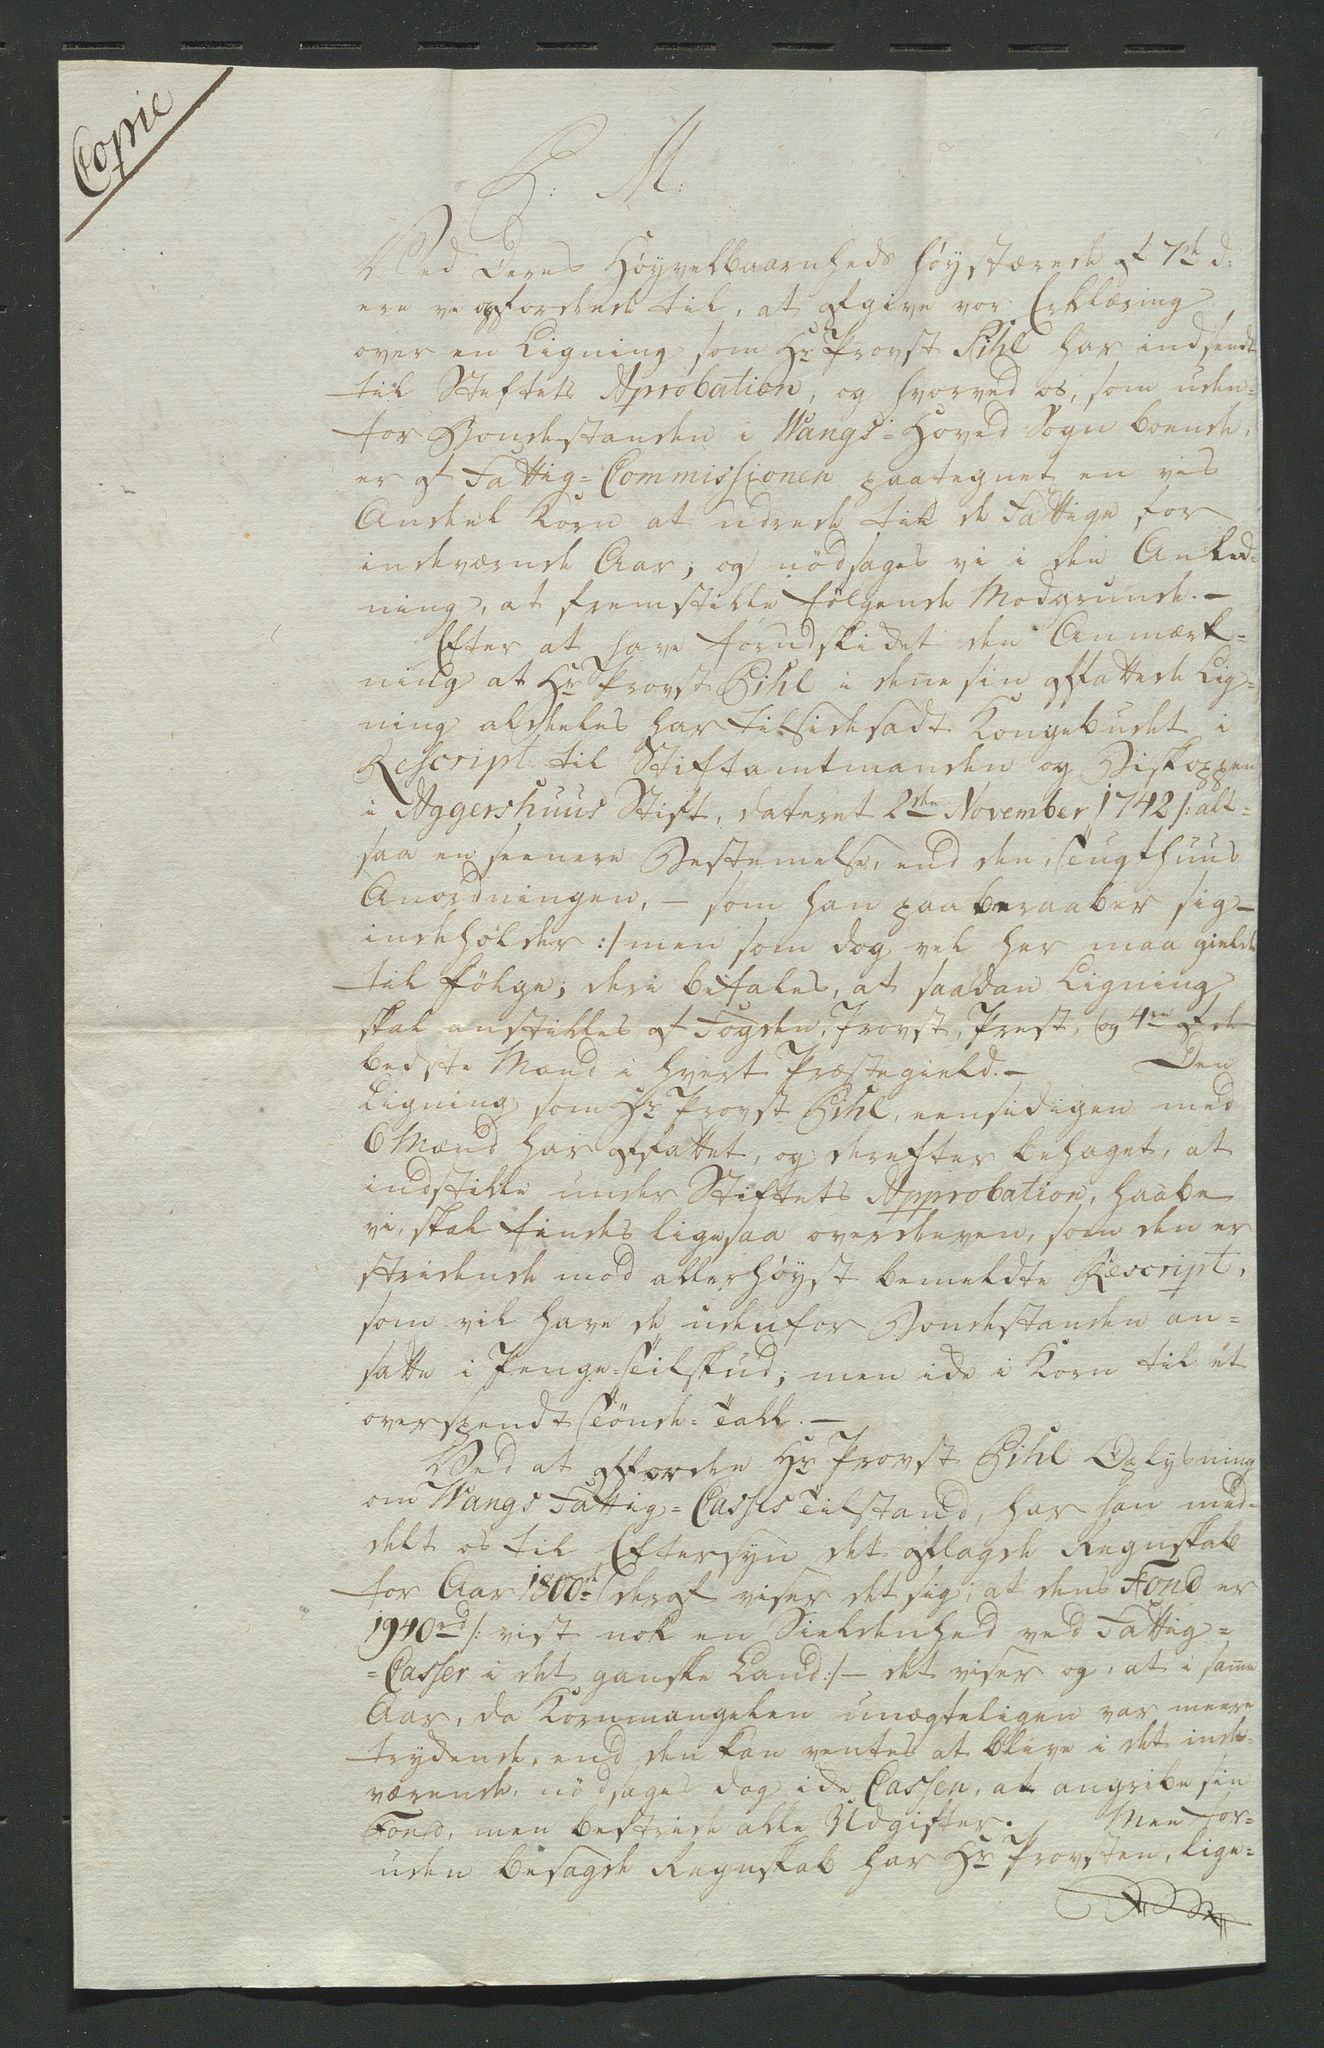 Copie
P: M:
Ved Deres Høyvelbaarenheds høystærede af 7de d:
ere vi opfordrede til, at afgive vor Erklæring
over en Ligning som Hr Provst Pihl har indsendt
til Stiftets Aprobation, og hvorved os, som uden-
for Bondestanden i Wangs-Hoved Sogn boende,
er af Fattig=Commissionen paategnet en vis
Andeel Korn at udrede til de Fattige for
indeværende Aar; og nödsages vi i den Anled-
ning, at fremstille følgende Modgrunde.-
Efter at have forudskikket den Anmærk-
ning at Hr Provst Pihl i denne sin affattede Lig-
ning aldeeles har tilsidesadt Kongebudet i
Rescript til Stiftamtmanden og Biskoppen
i Aggershuus Stift, dateret 2den November 1742 /: alt-
saa en seenere Bestemelse, end den, Tugthuus
Anordningen, - som han paaberaaber sig -
indeholder :/ men som dog vel her maa gielde
til følge; deri befales, at saadan Ligning
skal anstilles af Fogden, Provst, Præst, og 4re af de
bedste Mænd i hvert Præstegield.- Den
Ligning som Hr Provst Pihl, eensidigen med
6 Mænd har affattet, og derefter behaget, at
indstille under Stiftets Approbation, haabe
vi, skal findes ligesaa overdreven, som den er
stridende mod allerhøyst bemeldte Rescript,
som vil have de udenfor Bondestanden an-
satte i Penge-Tilskud; men ikke i Korn til et
overspendt Tönde-Tall.-
Ved at affordre Hr Provst Pihl Oplysning
om Wangs Fattig=Casses Tilstand, har han med-
delt os til Eftersyn det aflagde Regnskab
for Aar 1800; deraf viser det sig, at dens Fond er
1940rd /: vist nok en Sieldenhed ved Fattig=
=Casser i det ganske Land :/ - det viser og, at i samme
Aar, da Kornmangelen unægteligen var meere
trykende, end den kan ventes at blive i det inde-
værende, nödsages dog ikke Cassen, at angribe sin
Fond, men bestride alle Udgifter. Men for-
uden besagde Regnskab har Hr Provsten, lige=